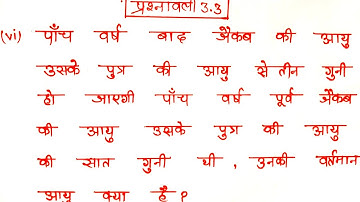 प्रश्नावली 3.3
(vi) पाँच वर्ष बाद जैकब की आयु
उसके पुत्र की आयु से तीन गुनी
हो जाएगी पाँच वर्ष पूर्व जैकब
की आयु उसके पुत्र की आयु
की सात गुनी थी, उनकी वर्तमान
आयु क्या है ?